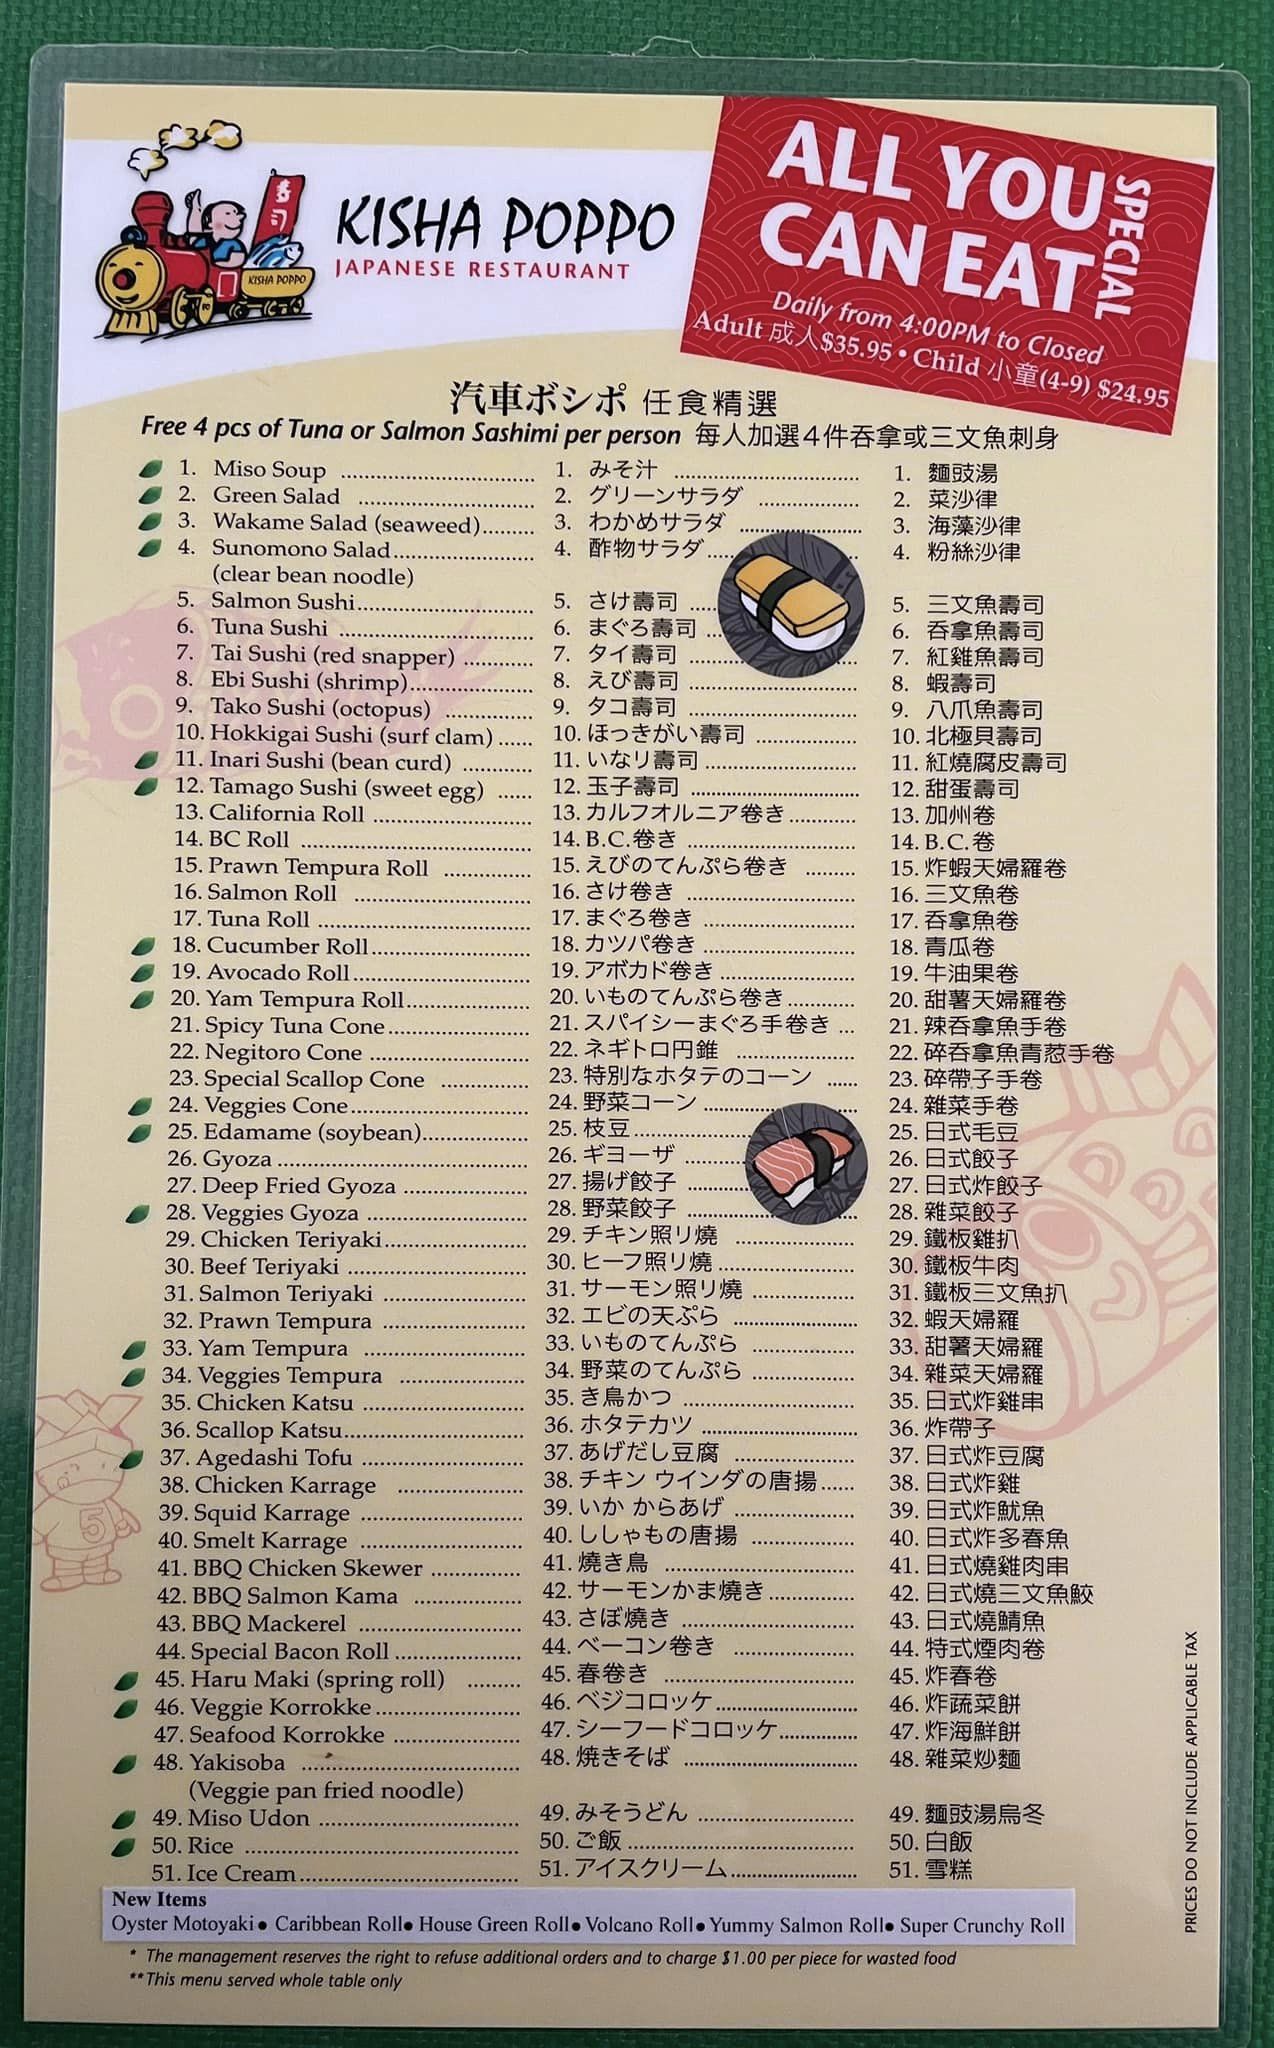 KISHA POPPO
JAPANESE RESTAURANT
KISHA POPPO
ALL YOU
CAN EAT
SPECIAL
Daily from 4:00PM to Closed
Adult 成人$35.95 • Child 小童(4-9) $24.95
汽車ボシポ 任食精選
Free 4 pcs of Tuna or Salmon Sashimi per person 每人加選4件吞拿或三文魚刺身
1. Miso Soup 1. みそ汁 1. 麵豉湯
2. Green Salad 2. グリーンサラダ 2. 菜沙律
3. Wakame Salad (seaweed) 3. わかめサラダ 3. 海藻沙律
4. Sunomono Salad 4. 酢物サラダ 4. 粉絲沙律
(clear bean noodle)
5. Salmon Sushi 5. さけ壽司 5. 三文魚壽司
6. Tuna Sushi 6. まぐろ壽司 6. 吞拿魚壽司
7. Tai Sushi (red snapper) 7. タイ壽司 7. 紅雞魚壽司
8. Ebi Sushi (shrimp) 8. えび壽司 8. 蝦壽司
9. Tako Sushi (octopus) 9. タコ壽司 9. 八爪魚壽司
10. Hokkigai Sushi (surf clam) 10. ほっきがい壽司 10. 北極貝壽司
11. Inari Sushi (bean curd) 11. いなリ壽司 11. 紅燒腐皮壽司
12. Tamago Sushi (sweet egg) 12. 玉子壽司 12. 甜蛋壽司
13. California Roll 13. カルフオルニア卷き 13. 加州卷
14. BC Roll 14. B.C.卷き 14. B.C.卷
15. Prawn Tempura Roll 15. えびのてんぷら卷き 15. 炸蝦天婦羅卷
16. Salmon Roll 16. さけ卷き 16. 三文魚卷
17. Tuna Roll 17. まぐろ卷き 17. 吞拿魚卷
18. Cucumber Roll 18. カツパ卷き 18. 青瓜卷
19. Avocado Roll 19. アボカド卷き 19. 牛油果卷
20. Yam Tempura Roll 20. いものてんぷら卷き 20. 甜薯天婦羅卷
21. Spicy Tuna Cone 21. スパイシーまぐろ手卷き 21. 辣吞拿魚手卷
22. Negitoro Cone 22. ネギトロ円錐 22. 碎吞拿魚青葱手卷
23. Special Scallop Cone 23. 特別なホタテのコーン 23. 碎帶子手卷
24. Veggies Cone 24. 野菜コーン 24. 雜菜手卷
25. Edamame (soybean) 25. 枝豆 25. 日式毛豆
26. Gyoza 26. ギヨーザ 26. 日式餃子
27. Deep Fried Gyoza 27. 揚げ餃子 27. 日式炸餃子
28. Veggies Gyoza 28. 野菜餃子 28. 雜菜餃子
29. Chicken Teriyaki 29. チキン照リ燒 29. 鐵板雞扒
30. Beef Teriyaki 30. ヒーフ照リ燒 30. 鐵板牛肉
31. Salmon Teriyaki 31. サーモン照リ燒 31. 鐵板三文魚扒
32. Prawn Tempura 32. エビの天ぷら 32. 蝦天婦羅
33. Yam Tempura 33. いものてんぷら 33. 甜薯天婦羅
34. Veggies Tempura 34. 野菜のてんぷら 34. 雜菜天婦羅
35. Chicken Katsu 35. き鳥かつ 35. 日式炸雞串
36. Scallop Katsu 36. ホタテカツ 36. 炸帶子
37. Agedashi Tofu 37. あげだし豆腐 37. 日式炸豆腐
38. Chicken Karrage 38. チキン ウインダの唐揚 38. 日式炸雞
39. Squid Karrage 39. いか からあげ 39. 日式炸魷魚
40. Smelt Karrage 40. ししゃもの唐揚 40. 日式炸多春魚
41. BBQ Chicken Skewer 41. 燒き鳥 41. 日式燒雞肉串
42. BBQ Salmon Kama 42. サーモンかま燒き 42. 日式燒三文魚鮫
43. BBQ Mackerel 43. さぼ燒き 43. 日式燒鯖魚
44. Special Bacon Roll 44. ベーコン卷き 44. 特式煙肉卷
45. Haru Maki (spring roll) 45. 春卷き 45. 炸春卷
46. Veggie Korrokke 46. ベジコロッケ 46. 炸蔬菜餅
47. Seafood Korrokke 47. シーフードコロッケ 47. 炸海鮮餅
48. Yakisoba 48. 焼きそば 48. 雜菜炒麵
(Veggie pan fried noodle)
49. Miso Udon 49. みそうどん 49. 麵豉湯烏冬
50. Rice 50. ご飯 50. 白飯
51. Ice Cream 51. アイスクリーム 51. 雪糕
New Items
Oyster Motoyaki● Caribbean Roll● House Green Roll● Volcano Roll● Yummy Salmon Roll● Super Crunchy Roll
* The management reserves the right to refuse additional orders and to charge $1.00 per piece for wasted food
** This menu served whole table only
PRICES DO NOT INCLUDE APPLICABLE TAX